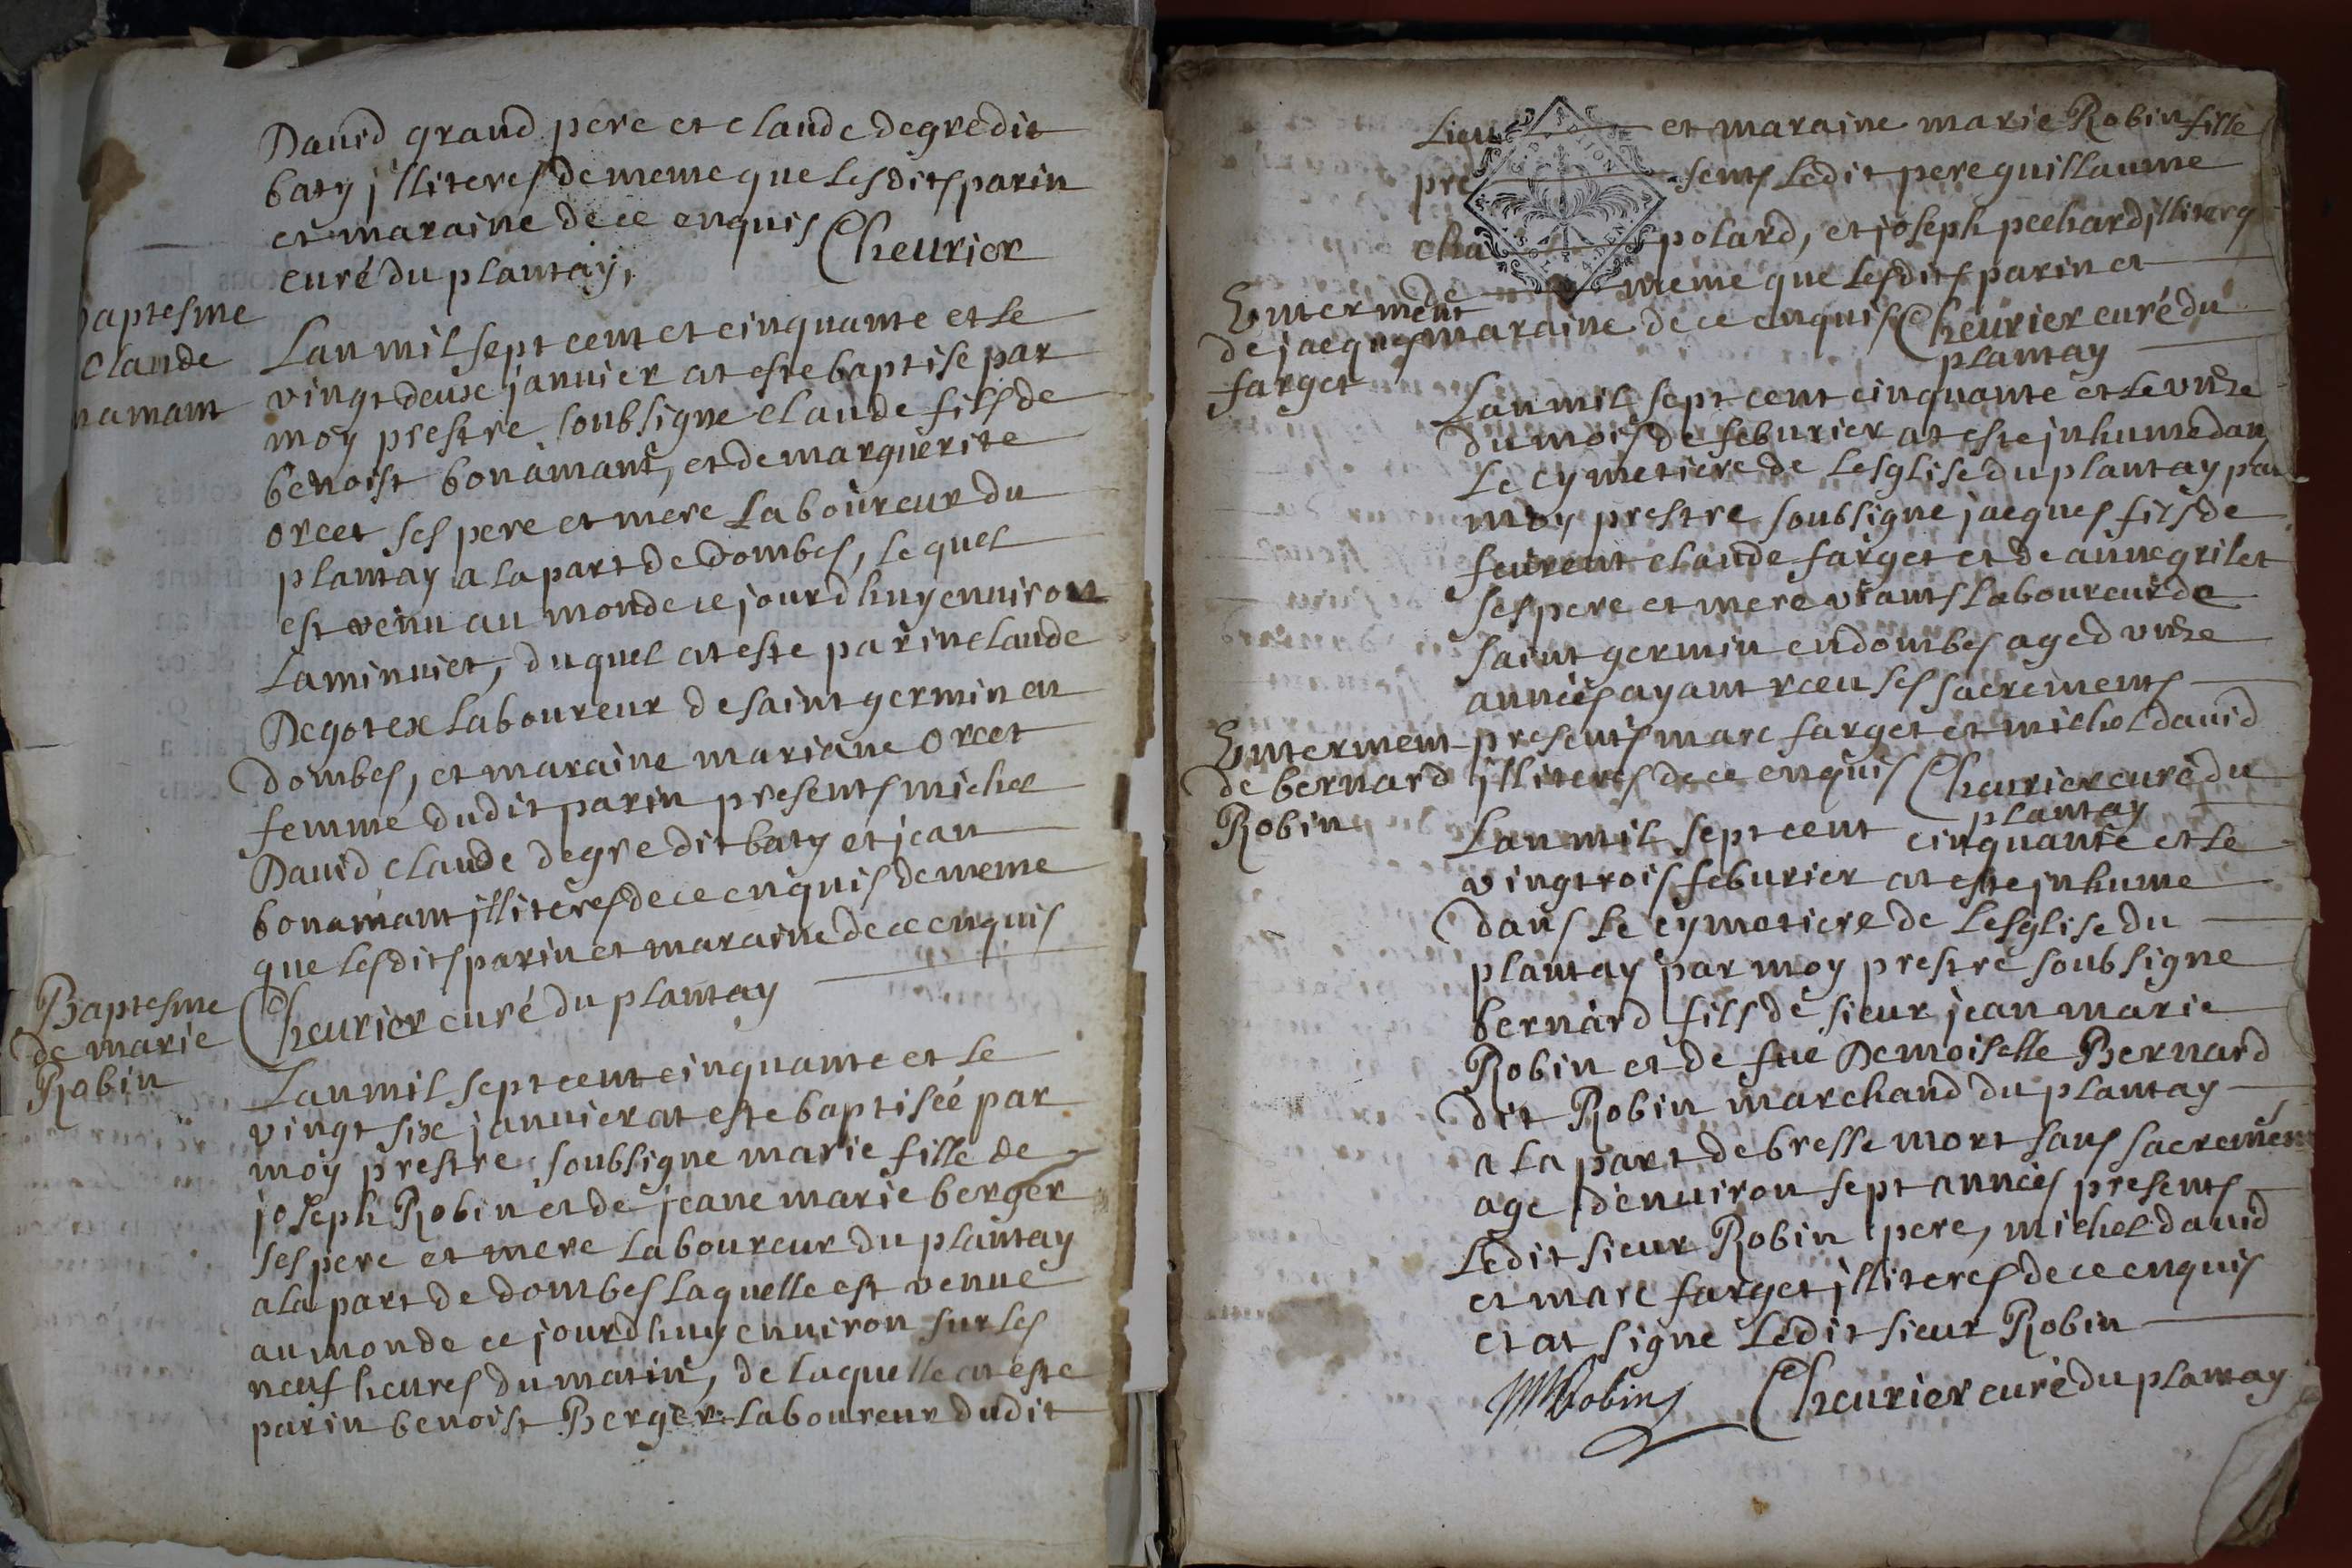 David grand pere et claude degre dit
baty jlliteres de meme que lesdits parin
et maraine de ce enquis Cheurier
curé du plantay,
baptesme
claude
namant
Lan mil sept cent et cinquante et le
vingt deux januier at este baptise par
moy prestre soubsigne claude fils de
benoist bonamant, et de marguerite
orcet ses pere et mere laboureur du
plantay a la part de dombes, lequel
est venu au monde ce jourdhuy enuiron
la minuict, duquel at este parin claude
Degotex laboureur de saint germin en
dombes, et maraine mariane orcet
femme dudit parin presents michel
David claude degre dit baty et jean
bonamant jlliteres de ce enquis de meme
que lesdits parin et maraine de ce enquis
Cheurier curé du plantay
Baptesme
de marie
Robin
Lan mil sept cent cinquante et le
vingt six januier at este baptisée par
moy prestre soubsigne marie fille de
joseph Robin et de jeane marie berger
ses pere et mere laboureur du plantay
a la part de dombes laquelle est venue
au monde ce jourdhuy enuiron sur les
neuf heures du matin, de laquelle at este
parin benoist Berger laboureur dudit
Lieu et maraine marie Robin fille
pre -sents ledit pere guillaume
cha polard, et joseph pechard jlliteres
de meme que lesdits parin et
maraine de ce enquis Cheurier curé du
plantay
Enterment
de jacques
farget
Lan mil sept cent cinquante et le vnze
du mois de feburier at este jnhume dan
le cymetiere de lesglise du plantay par
moy prestre soubsigne jacques fils de
feurent claude farget et de anne grilet
ses pere et mere viants laboureur de
saint germin en dombes age d vnze
années ayant rceu ses sacrements
presents marc farget et michel david
jlliteres de ce enquis Cheurier curé du
plantay
Enterment
de bernard
Robin
Lan mil sept cent cinquante et le
vingtrois feburier at este jnhume
dans le cymetiere de lesglise du
plantay par moy prestre soubsigne
bernard fils de sieur jean marie
Robin et de fue Demoiselle Bernard
dit Robin marchand du plantay
a la part de bresse mort sans sacremen
age d'enuiron sept années presents
ledit sieur Robin pere, michel david
et marc farget jlliteres de ce enquis
et at signe ledit sieur Robin
Robin Cheurier curé du plantay